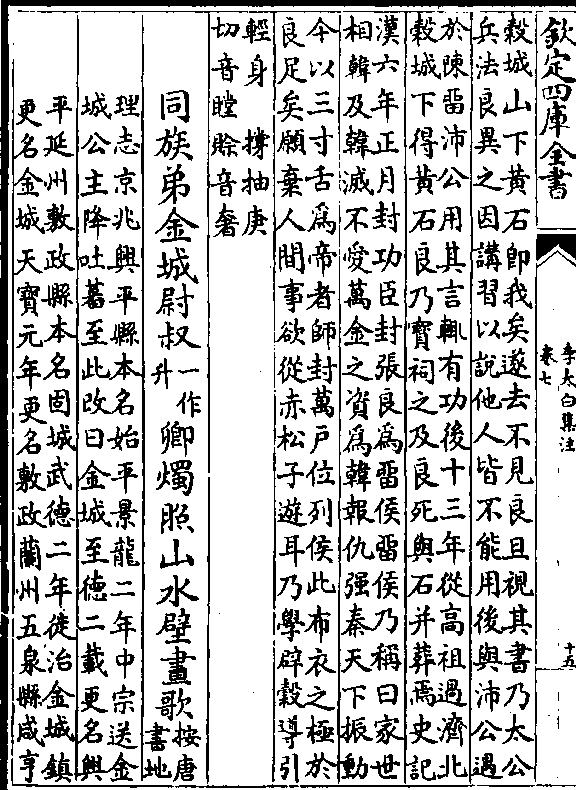 欽定四庫全書
李太白集注
卷七
十五
穀城山下黄石即我矣遂去不見良旦視其書乃太公
兵法良異之因講習以說他人皆不能用後與沛公遇
於陳留沛公用其言輒有功後十三年從高祖過濟北
穀城下得黄石良乃寶祠之及良死與石并葬焉史記
漢六年正月封功臣封張良為留侯留侯乃稱曰家世
相韓及韓滅不愛萬金之資為韓報仇强秦天下振動
今以三寸舌為帝者師封萬戸位列侯此布衣之極於
良足矣願棄人間事欲從赤松子遊耳乃學辟穀導引
輕身 撐抽庚
切音瞠賖音奢
同族弟金城尉叔一作升卿燭照山水壁畫歌按唐書地
理志京兆興平縣本名始平景龍二年中宗送金
城公主降吐蕃至此改曰金城至德二載更名興
平延州敷政縣本名固城武德二年徙治金城鎮
更名金城天寶元年更名敷政蘭州五泉縣咸亨